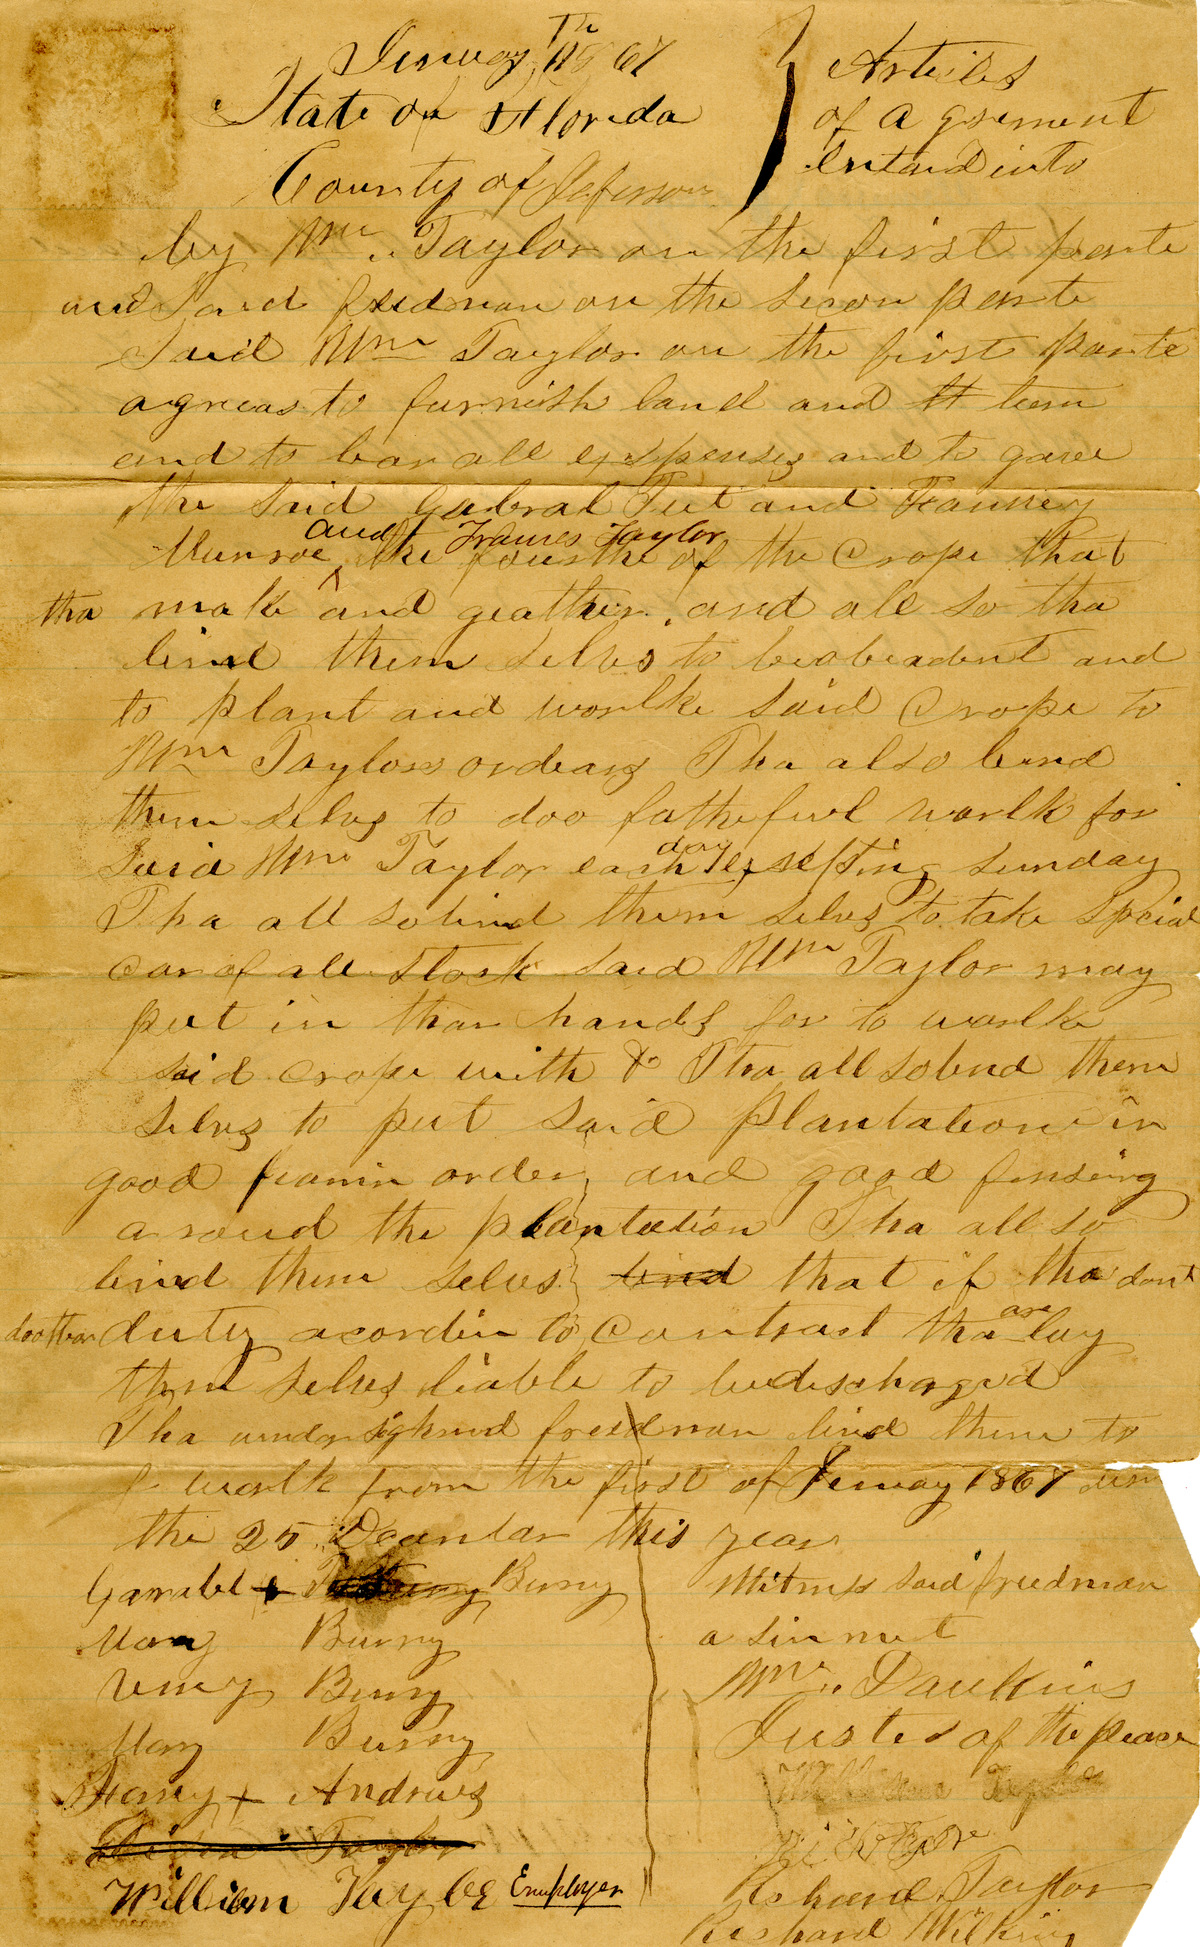 Jenuay 1th 1867
State of Florida
County of Jeferson
Articles
of a grement
entard into
by Wm. Taylor on the first parte
and Said freedman on the secon parte
Said Wm Taylor on the first parte
agreas to furnish land and team
and to bar all expenses and to gave
the said Gabral Tut and Fanney
and Frances Taylor
Munroe the fourthe of the Crope that
tha make and geather. and all so tha
bind them selves to beobeadent and
to plant and worlke said Crope to
Wm Taylors ordears Tha also bind
them selvs to doo fathefurl worlk for
day
Said Wm Taylor each exsepting sunday
Tha all sobind them selvs to take special
car of all stock said Wm Taylor may
put in thar hands for to worlke
said crope with & Tha all sobind them
selvs to put said Plantation in
good framin order, and good fensing
around the plantation Tha all so
bind them selves bind that if tha dont
are
doo thar duty acordin to contract tha lay
them selves liable to bedischarged
Tha undersighned freedman bind them to
worlk from the first of Jenuay 1867
the 25 Decembar this year
Garabel + Burny
Mary Burny
Burny
Mary Burny
Fanny + Andrews
Taylor
William Taylor Employer
Witness said freedman
a sinment
Wm. Dawkins
Justes of the peace
Richard Taylor
Richard Wilkins